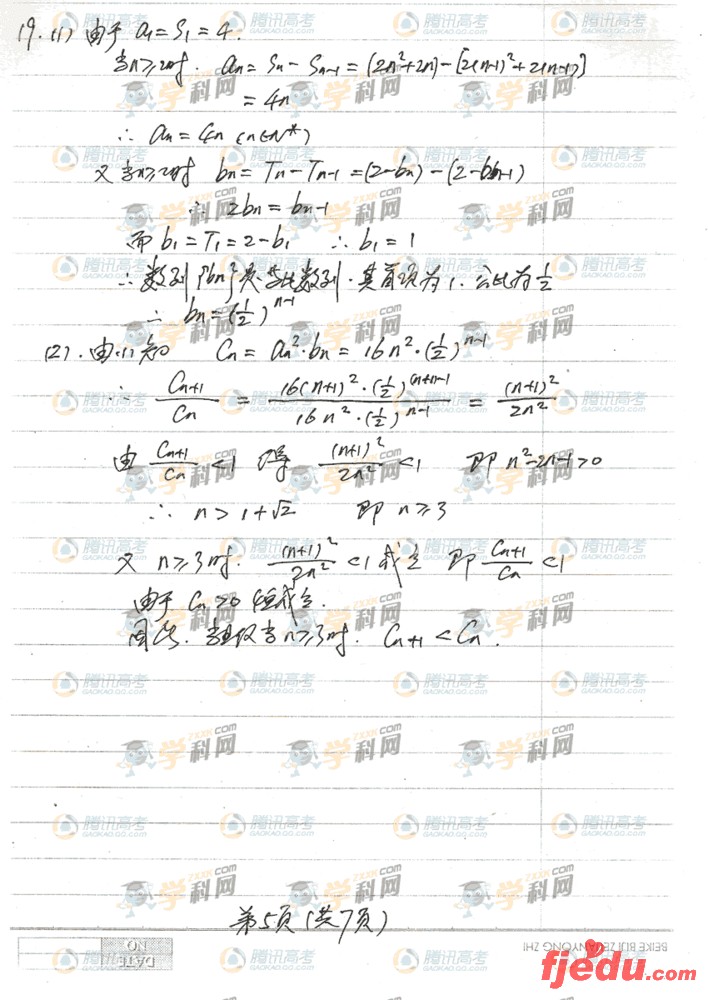 19. (1) 由于 a₁=S₁=4.
当n≥2时. aₙ=Sₙ-Sₙ₋₁=(2n²+2n)-[2(n-1)²+2(n-1)]
=4n
∴ aₙ=4n (n∈N*)
又当n≥2时 bₙ=Tₙ-Tₙ₋₁=(2-bₙ)-(2-bₙ₋₁)
∴ 2bₙ=bₙ₋₁
而 b₁=T₁=2-b₁ ∴ b₁=1
∴ 数列{bₙ}是等比数列. 其首项为1. 公比为½
∴ bₙ=(½)ⁿ⁻¹
(2). 由(1)知 Cₙ=aₙ²·bₙ=16n²·(½)ⁿ⁻¹
∴ Cₙ₊₁/Cₙ = 16(n+1)²·(½)⁽ⁿ⁺¹⁾⁻¹/16n²·(½)ⁿ⁻¹ = (n+1)²/2n²
由 Cₙ₊₁/Cₙ <1 得 (n+1)²/2n² <1 即 n²-2n-1>0
∴ n>1+√2 即 n≥3
又 n≥3时. (n+1)²/2n² <1成立 即 Cₙ₊₁/Cₙ <1
由于 Cₙ>0 恒成立.
因此. 当且仅当n≥3时. Cₙ₊₁<Cₙ.
第5页(共7页)
DATE
NO
BEIKE BIJI ZE
ANYONG ZHI
fjedu.com
腾讯高考
GAOKAO.QQ.COM
学科网
ZXXK.com